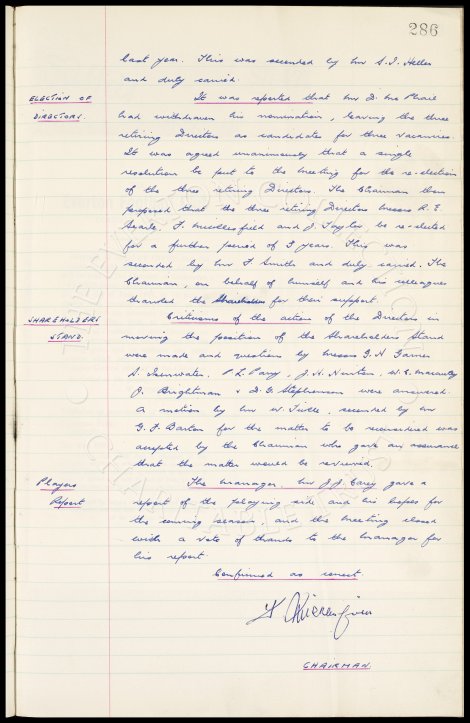 286
last year. This was seconded by Mr S.J. Heller
and duly carried.
ELECTION OF
DIRECTORS.
It was reported that Mr D. McPhail
had withdrawn his nomination, leaving the three
retiring Directors as candidates for three vacancies.
It was agreed unanimously that a single
resolution be put to the meeting for the re-election
of the three retiring Directors. The Chairman then
proposed that the three retiring Directors Messrs R.E.
Searle, F. Micklesfield and J. Taylor be re-elected
for a further period of 3 years. This was
seconded by Mr F Smith and duly carried. The
Chairman, on behalf of himself and his colleagues
thanked the Shareholders for their support.
SHAREHOLDERS
STAND.
Criticisms of the action of the Directors in
moving the position of the Shareholders Stand
were made and questions by Messrs G.H Garner
S. P.L. Parry, J.H. Newton, W.E.
J. Brightman & D.G. Stephenson were answered.
A motion by Mr W. Tuttle, seconded by Mr
G.F. Barton for the matter to be reconsidered was
accepted by the Chairman who gave an assurance
that the matter would be reviewed.
Players
Report
The Manager, Mr J.J. Carey gave a
report of the playing side and his hopes for
the coming season, and the meeting closed
with a vote of thanks to the Manager for
his report
Confirmed as correct.
CHAIRMAN.